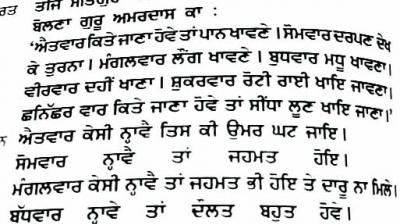 ਬੋਲਣਾ ਗੁਰੂ ਅਮਰਦਾਸ ਕਾ :
'ਐਤਵਾਰ ਕਿਤੇ ਜਾਣਾ ਹੋਵੇ ਤਾਂ ਪਾਨ ਖਾਵਣੇ। ਸੋਮਵਾਰ ਦਰਪਣ ਦੇਖ
ਕੇ ਤੁਰਨਾ। ਮੰਗਲਵਾਰ ਲੌਂਗ ਖਾਵਣੇ। ਬੁਧਵਾਰ ਮਧੂ ਖਾਵਣਾ।
ਵੀਰਵਾਰ ਦਹੀਂ ਖਾਣਾ। ਸ਼ੁਕਰਵਾਰ ਰੋਟੀ ਰਾਈ ਖਾਇ ਜਾਵਣਾ।
ਛਨਿੱਛਰ ਵਾਰ ਕਿਤੇ ਜਾਣਾ ਹੋਵੇ ਤਾਂ ਸੀਂਧਾ ਲੂਣ ਖਾਇ ਜਾਣਾ।'
ਐਤਵਾਰ ਕੇਸੀ ਨ੍ਹਾਵੈ ਤਿਸ ਕੀ ਉਮਰ ਘਟ ਜਾਇ।
ਸੋਮਵਾਰ ਨ੍ਹਾਵੈ ਤਾਂ ਜ਼ਹਮਤ ਹੋਇ।
ਮੰਗਲਵਾਰ ਕੇਸੀ ਨ੍ਹਾਵੈ ਤਾਂ ਜ਼ਹਮਤ ਭੀ ਹੋਇ ਤੇ ਦਾਰੂ ਨਾ ਮਿਲੇ।
ਬੁੱਧਵਾਰ ਨ੍ਹਾਵੇ ਤਾਂ ਦੌਲਤ ਬਹੁਤ ਹੋਵੇ।